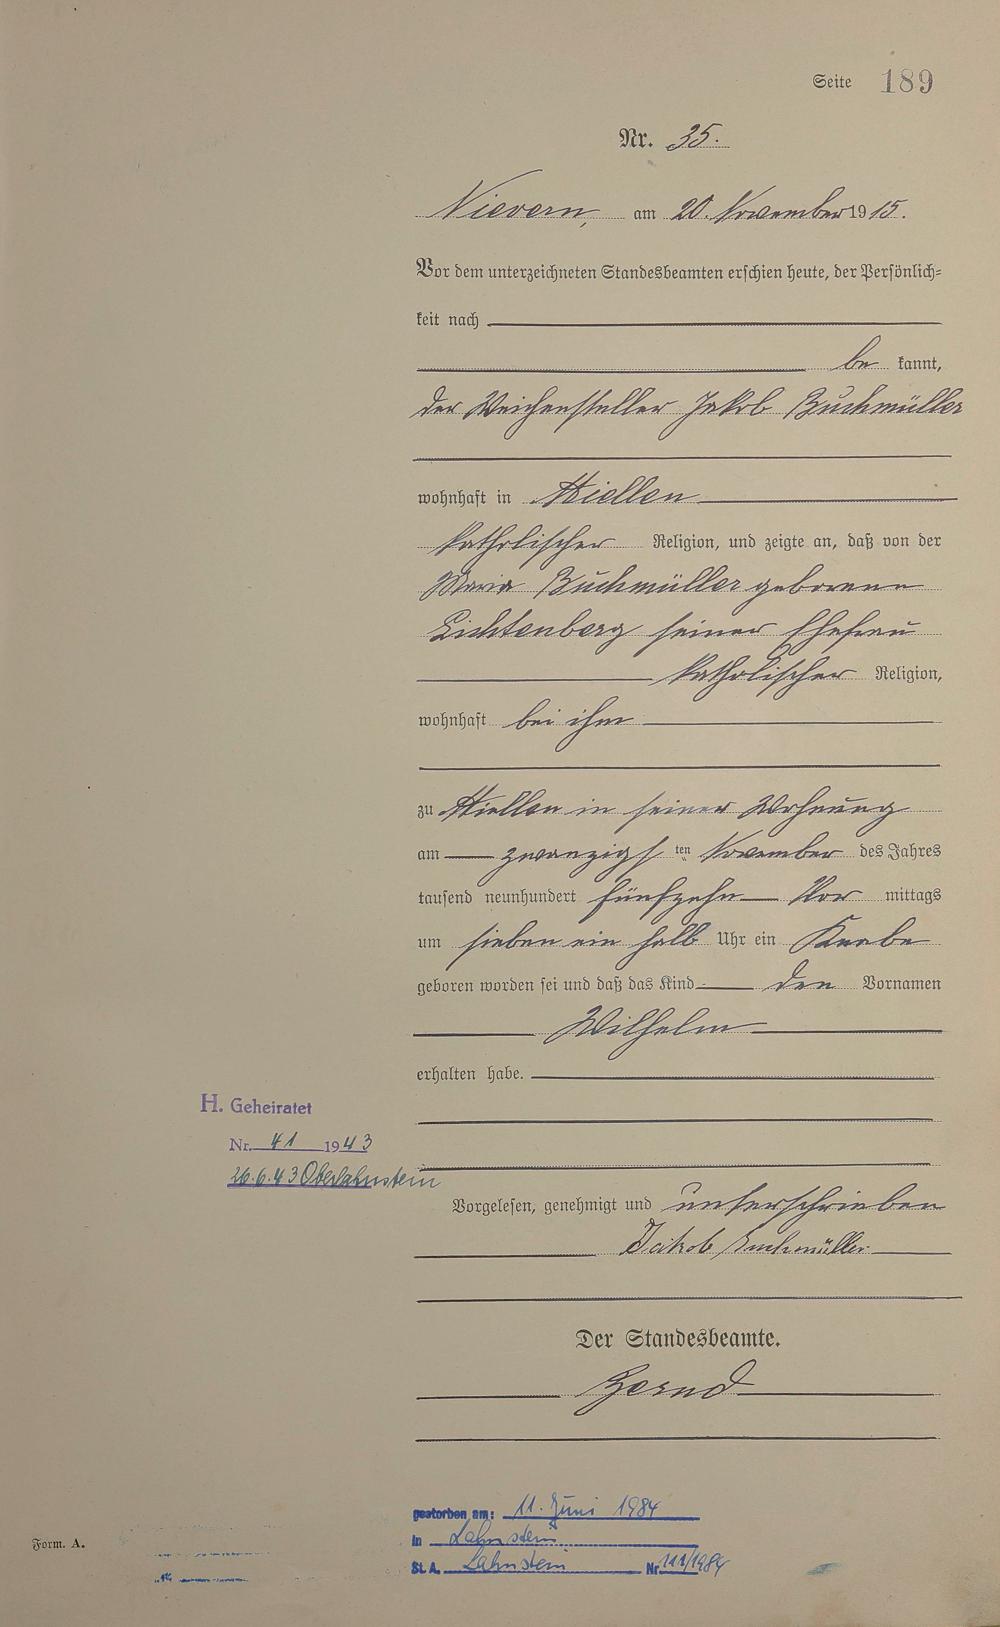 Seite 189
Nr. 35.
Nievern, am 20. November 1915.
Vor dem unterzeichneten Standesbeamten erschien heute, der Persönlich=
keit nach
be kannt,
der Weichensteller Jakob Buchmüller
wohnhaft in Miellen
katholischer Religion, und zeigte an, daß von der
Maria Buchmüller geborene
Lichtenberg seiner Ehefrau
katholischer Religion,
wohnhaft bei ihm
zu Miellen in seiner Wohnung
am zwanzigs ten November des Jahres
tausend neunhundert fünfzehn Vor mittags
um sieben ein halb Uhr ein Knabe
geboren worden sei und daß das Kind den Vornamen
Wilhelm
erhalten habe.
H. Geheiratet
Nr. 41 1943
26.6.43 Oberlahnstein
Vorgelesen, genehmigt und unterschrieben
Jakob Buchmüller
Der Standesbeamte.
gestorben am: 11. Juni 1984
in Lahnstein
St. A. Lahnstein Nr. 111/1984
Form. A.